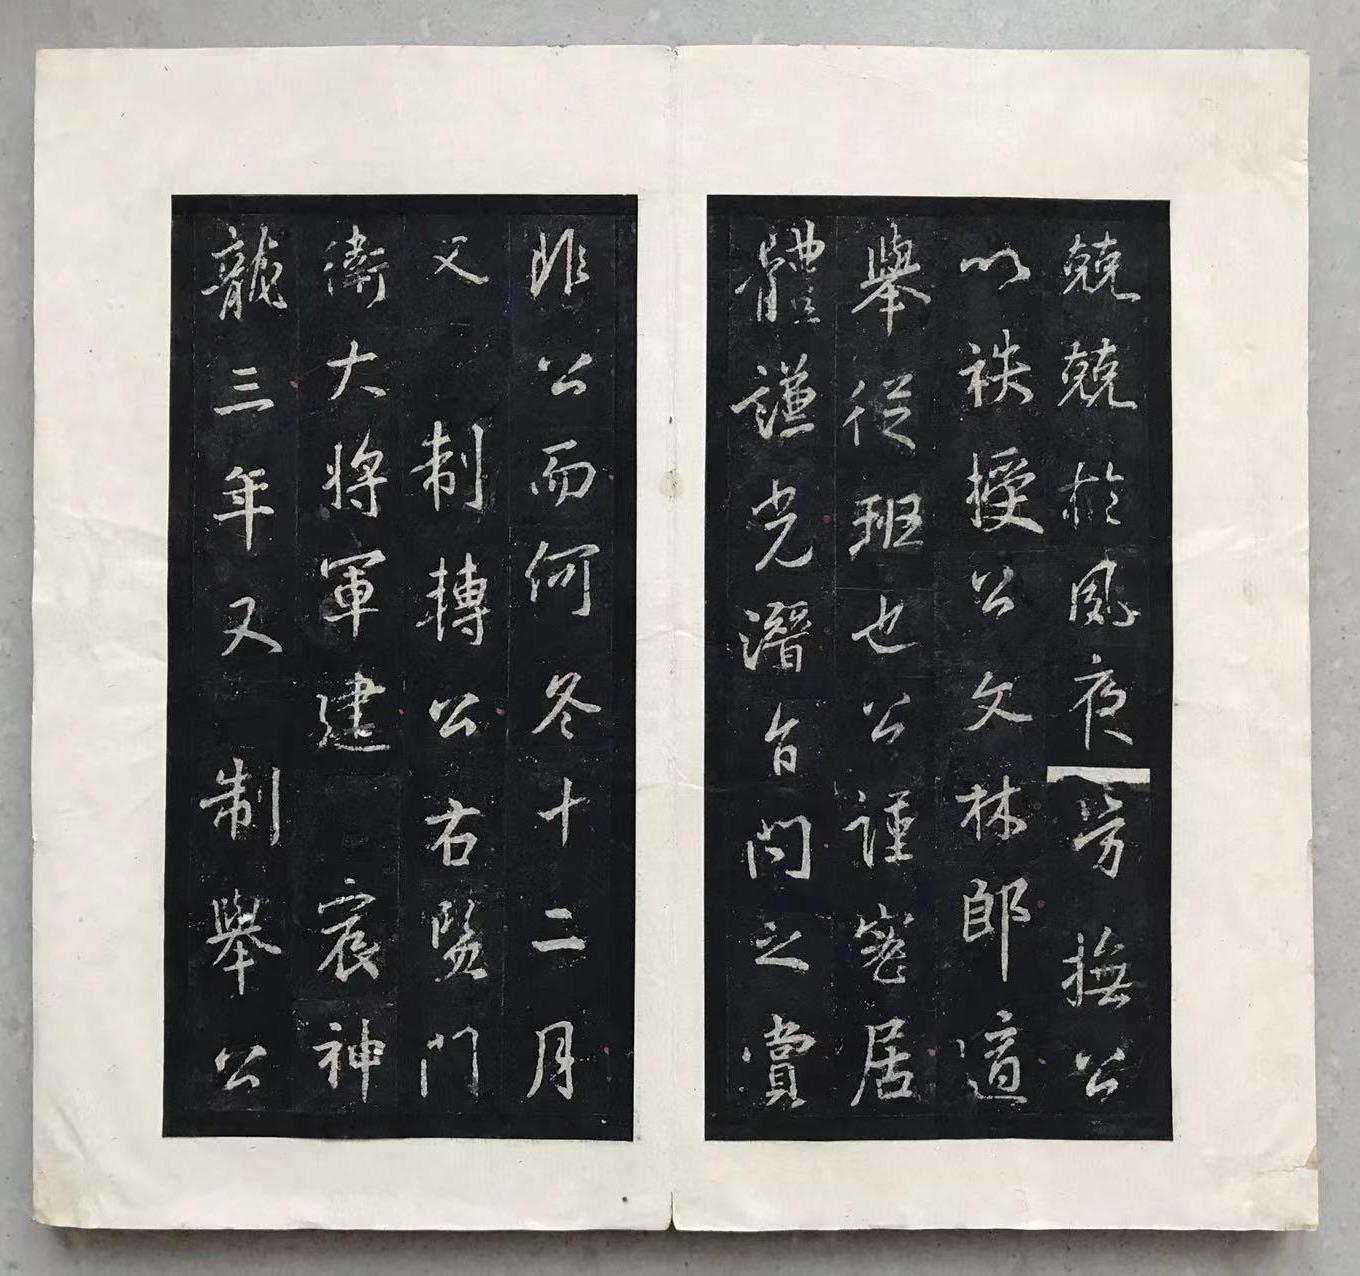 兢兢於夙夜旁撫公
以秩授公文林郎適
舉從班也公謹密居
體謙光潛旨問之賞
非公而何冬十二月
又制轉公右監門
衛大將軍建宸神
龍三年又制舉公